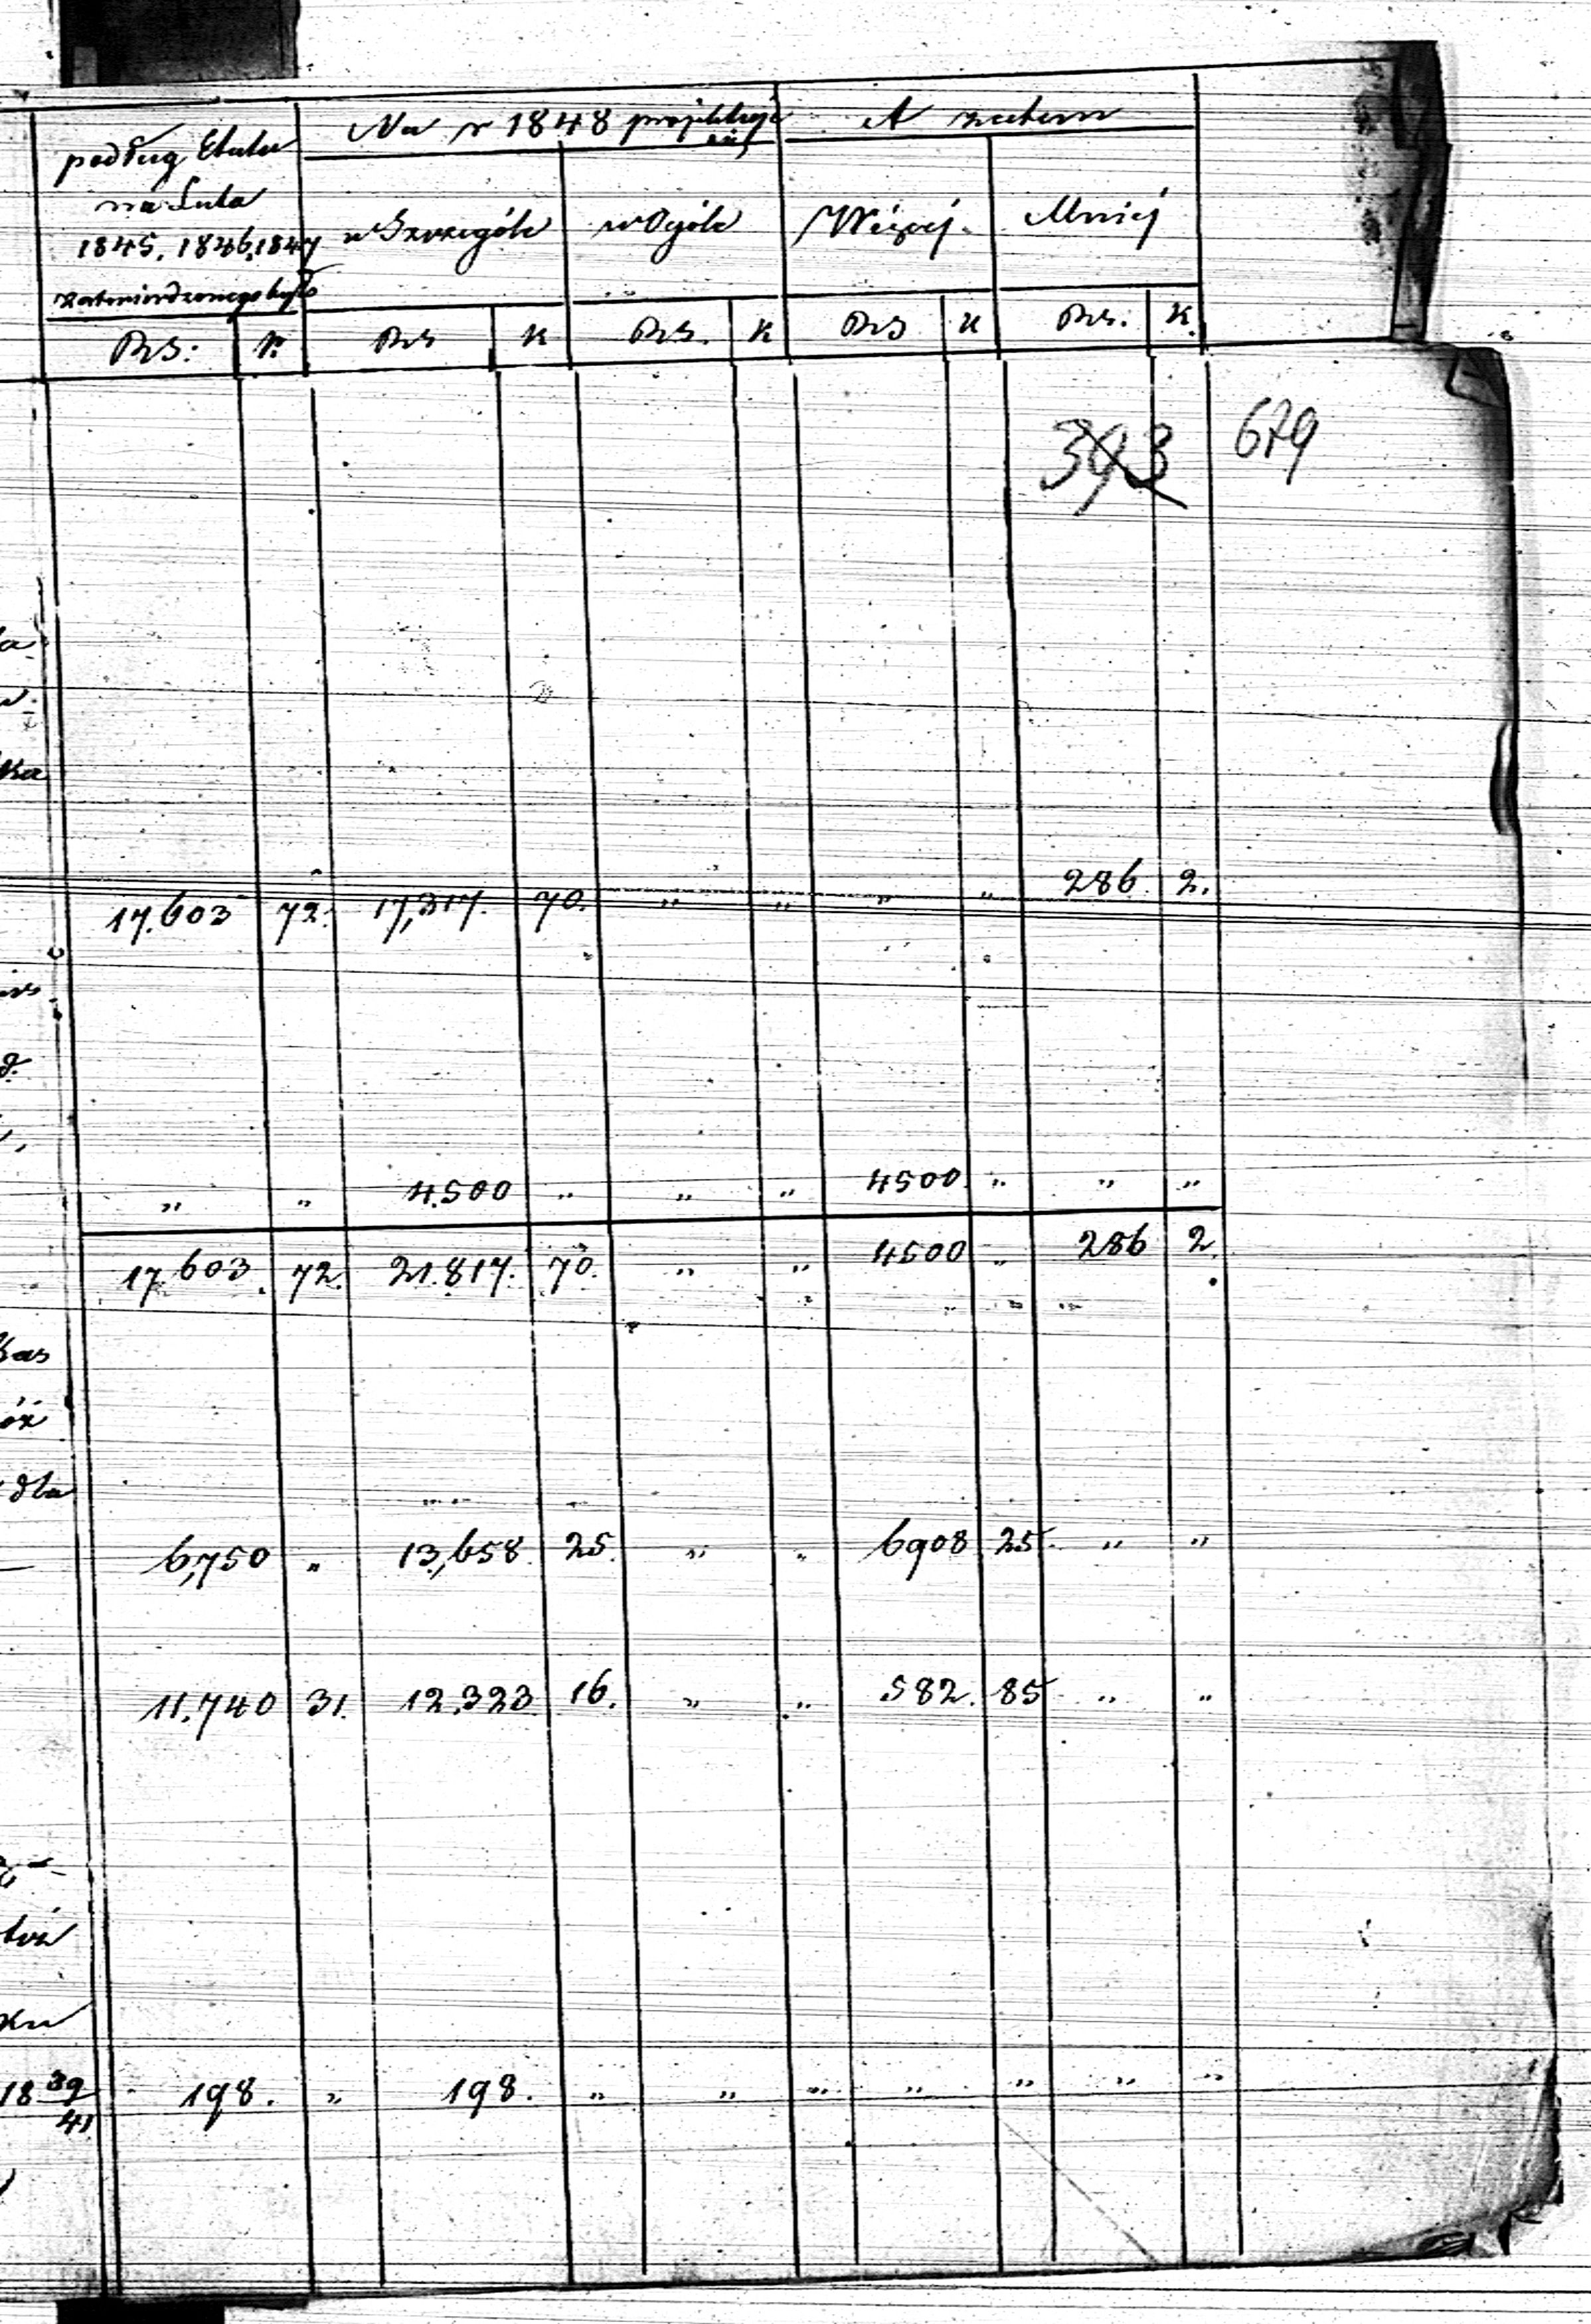 podług Etatu
na Lata
1845, 1846, 1847
zatwierdzonego było
Na r 1848 projektuje
się
A zatem
w Szczególe
w Ogóle
Więcej.
Mniej
RS: K RS K RS. K RS K RS: K.
393 679
ka
17.603 72. 17,317. 70. „ „ „ „ 286. 2.
„ „ 4.500 „ „ „ 4500. „ „ „
17.603. 72. 21.817. 70. „ „ 4500 „ 286 2.
dla
6,750 „ 13,658. 25. „ „ 6908 25. „ „
11.740 31. 12.323. 16. „ „ 582. 85 „ „
18 39/41 198. „ 198. „ „ „ „ „ „ „